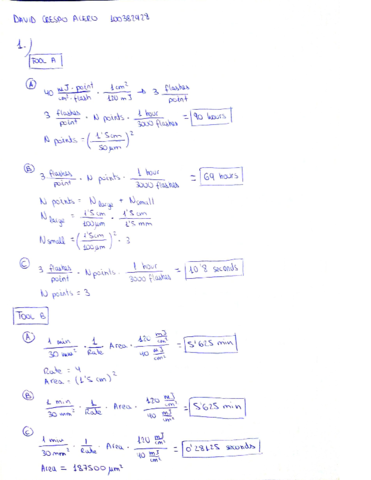 DAVID CRESPO ACERO 100382928
1.)
TOOL A
Ⓐ 40 mJ·point / cm²·flash · 1 cm² / 120 mJ → 3 flashes / point
3 flashes / point · N points · 1 hour / 3000 flashes = 90 hours
N points = (1'5 cm / 50 μm)²
Ⓑ 3 flashes / point · N points · 1 hour / 3000 flashes = 69 hours
N points = N large + N small
N large = 1'5 cm / 100 μm · 1'5 cm / 1'5 mm
N small = (1'5 cm / 100 μm)² · 3
Ⓒ 3 flashes / point · N points · 1 hour / 3000 flashes = 10'8 seconds
N points = 3
TOOL B
Ⓐ 1 min / 30 mm² · 1 / Rate · Area · 120 mJ/cm² / 40 mJ/cm² = 5'625 min
Rate = 4
Area = (1'5 cm)²
Ⓑ 1 min / 30 mm² · 1 / Rate · Area · 120 mJ/cm² / 40 mJ/cm² = 5'625 min
Ⓒ 1 min / 30 mm² · 1 / Rate · Area · 120 mJ/cm² / 40 mJ/cm² = 0'28125 seconds
Area = 187500 μm²